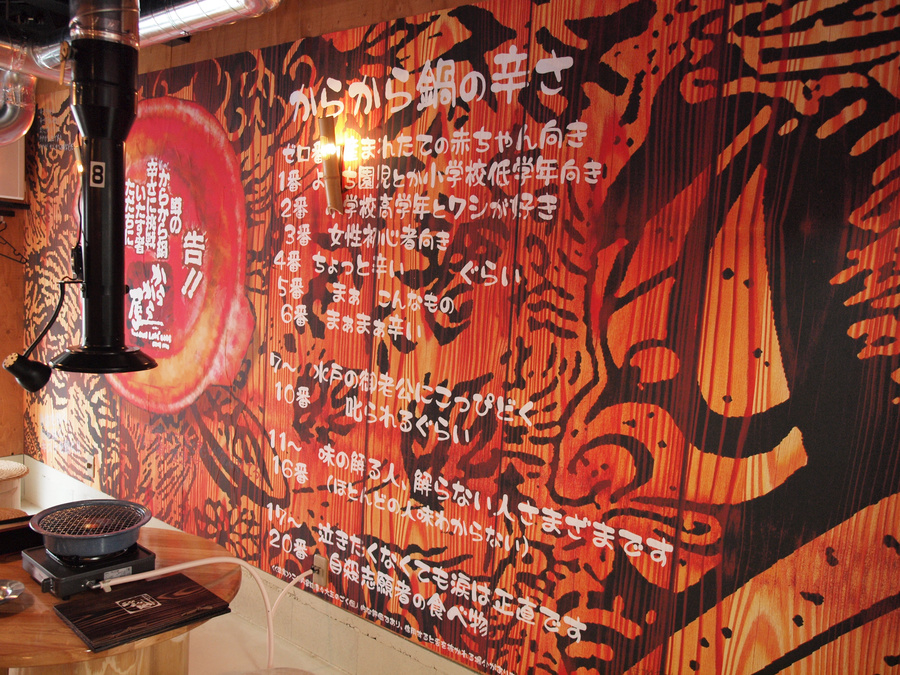 からから鍋の辛さ
ゼロ番 まれたての赤ちゃん向き
1番 園児とか小学校低学年向き
2番 学校高学年とワシが好き
3番 女性初心者向き
4番 ちょっと辛い ぐらい
5番 まぁ こんなもの
6番 まぁまぁ辛い
7〜10番 水戸の御老公にこっぴどく
叱られるぐらい
11〜16番 味の解る人、解らない人さまざまです
(ほとんどの人味わからない)
17〜20番 泣きたくなくても涙は正直です
自殺志願者の食べ物
告!!
噂の
からから鍋
辛さに挑戦
いたす者
たちに
から
から
屋
8